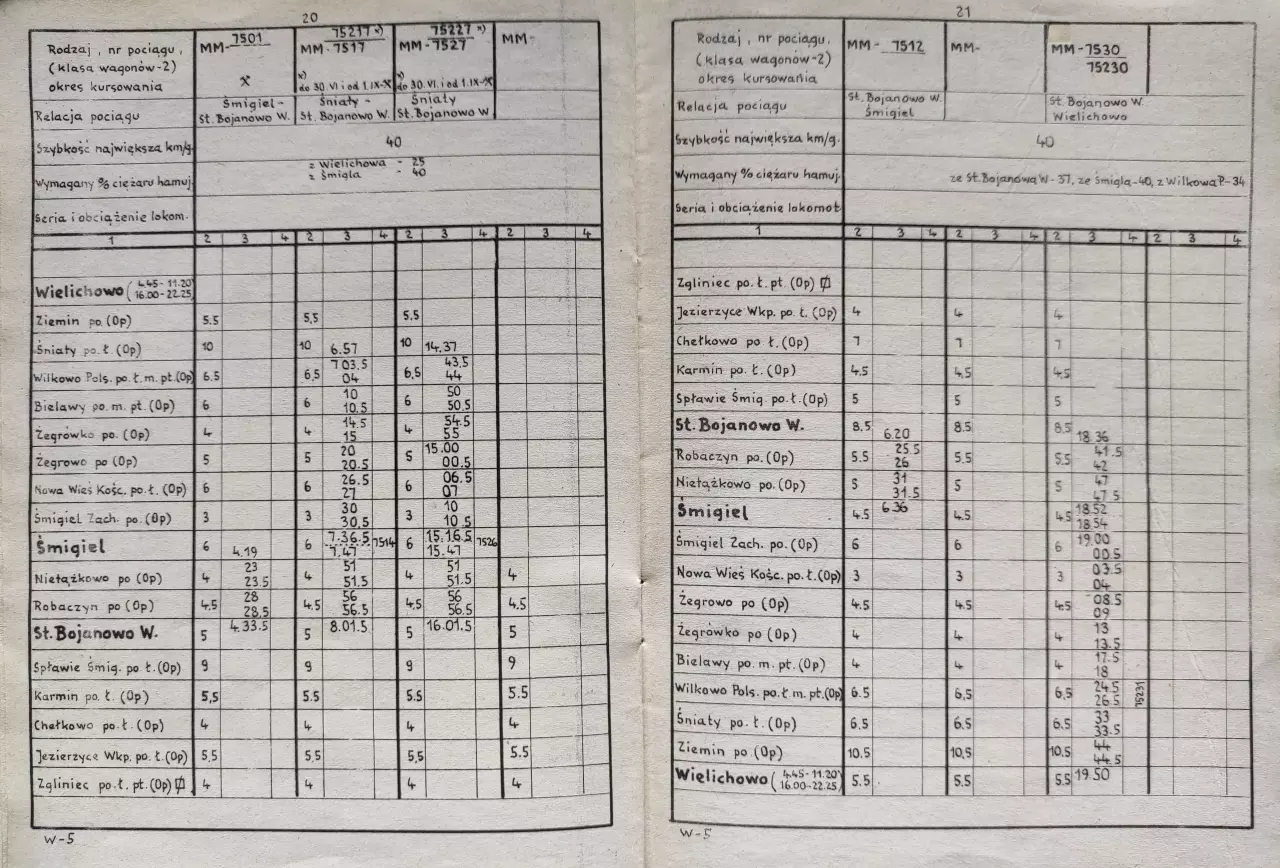 20
Rodzaj, nr pociągu, (klasa wagonów-2) okres kursowania
MM-7501 X
MM-75217 x) 7517 x) do 30.VI i od 1.IX-X
MM-75227 x) 7527 x) do 30.VI. i od 1.IX-X
MM-
Relacja pociągu Śmigiel - St. Bojanowo W. Śniaty - St. Bojanowo W. Śniaty St. Bojanowo W
Szybkość największa km/g. 40
Wymagany % ciężaru hamuj. z Wielichowa - 25
z Śmigla - 40
Seria i obciążenie lokom.
1 2 3 4 2 3 4 2 3 4 2 3 4
Wielichowo (4.45-11.20 16.00-22.25)
Ziemin po. (Op) 5.5 5,5 5.5
Śniaty po. ł. (Op) 10 10 6.57 10 14.37
Wilkowo Pols. po. ł. m. pt. (Op) 6.5 6,5 7 03.5 04 6,5 43.5 44
Bielawy po. m. pt. (Op) 6 6 10 10.5 6 50 50.5
Żegrówko po. (Op) 4 4 14.5 15 4 54.5 55
Żegrowo po (Op) 5 5 20 20.5 5 15.00 00.5
Nowa Wieś Kośc. po. ł. (Op) 6 6 26.5 27 6 06.5 07
Śmigiel Zach. po. (Op) 3 3 30 30,5 3 10 10.5
Śmigiel 6 4.19 6 7.36.5 7.47 7514 6 15.16.5 15.47 7526
Nietążkowo po (Op) 4 23 23.5 4 51 51.5 4 51 51.5 4
Robaczyn po (Op) 4,5 28 28,5 4.5 56 56.5 4,5 56 56.5 4.5
St. Bojanowo W. 5 4.33.5 5 8.01.5 5 16.01.5 5
Spławie Śmig. po ł. (Op) 9 9 9 9
Karmin po. ł. (Op) 5,5 5.5 5.5 5.5
Chełkowo po. ł. (Op) 4 4 4 4
Jezierzyce Wkp. po. ł. (Op) 5,5 5,5 5,5 5.5
Zgliniec po. ł. pt. (Op) 4 4 4 4
W-5
21
Rodzaj, nr pociągu, (klasa wagonów-2) okres kursowania
MM- 7512
MM-
MM-7530 75230
Relacja pociągu St. Bojanowo W. Śmigiel St. Bojanowo W. Wielichowo
Szybkość największa km/g. 40
Wymagany % ciężaru hamuj. ze St. Bojanowa W - 37, ze Śmigla-40, z Wilkowa P.-34
Seria i obciążenie lokomot
1 2 3 4 2 3 4 2 3 4 2 3 4
Zgliniec po. ł. pt. (Op)
Jezierzyce Wkp. po. ł. (Op) 4 4 4
Chełkowo po ł. (Op) 7 7 7
Karmin po. ł. (Op) 4.5 4,5 4,5
Spławie Śmig. po. ł. (Op) 5 5 5
St. Bojanowo W. 8.5 6.20 8.5 8.5 18.36
Robaczyn po. (Op) 5.5 25.5 26 5.5 5.5 41.5 42
Nietążkowo po. (Op) 5 31 31.5 5 5 47 47.5
Śmigiel 4.5 6.36 4.5 4.5 18.52 18.54
Śmigiel Zach. po. (Op) 6 6 6 19.00 00.5
Nowa Wieś Kośc. po. ł. (Op) 3 3 3 03.5 04
Żegrowo po (Op) 4.5 4.5 4.5 08.5 09
Żegrówko po (Op) 4 4 4 13 13.5
Bielawy po. m. pt. (Op) 4 4 4 17.5 18
Wilkowo Pols. po. ł. m. pt. (Op) 6.5 6,5 6,5 24.5 26.5 75231
Śniaty po. ł. (Op) 6.5 6.5 6.5 33 33.5
Ziemin po. (Op) 10.5 10,5 10.5 44 44.5
Wielichowo (4.45-11.20 16.00-22.25) 5.5 5.5 5.5 19.50
W-5